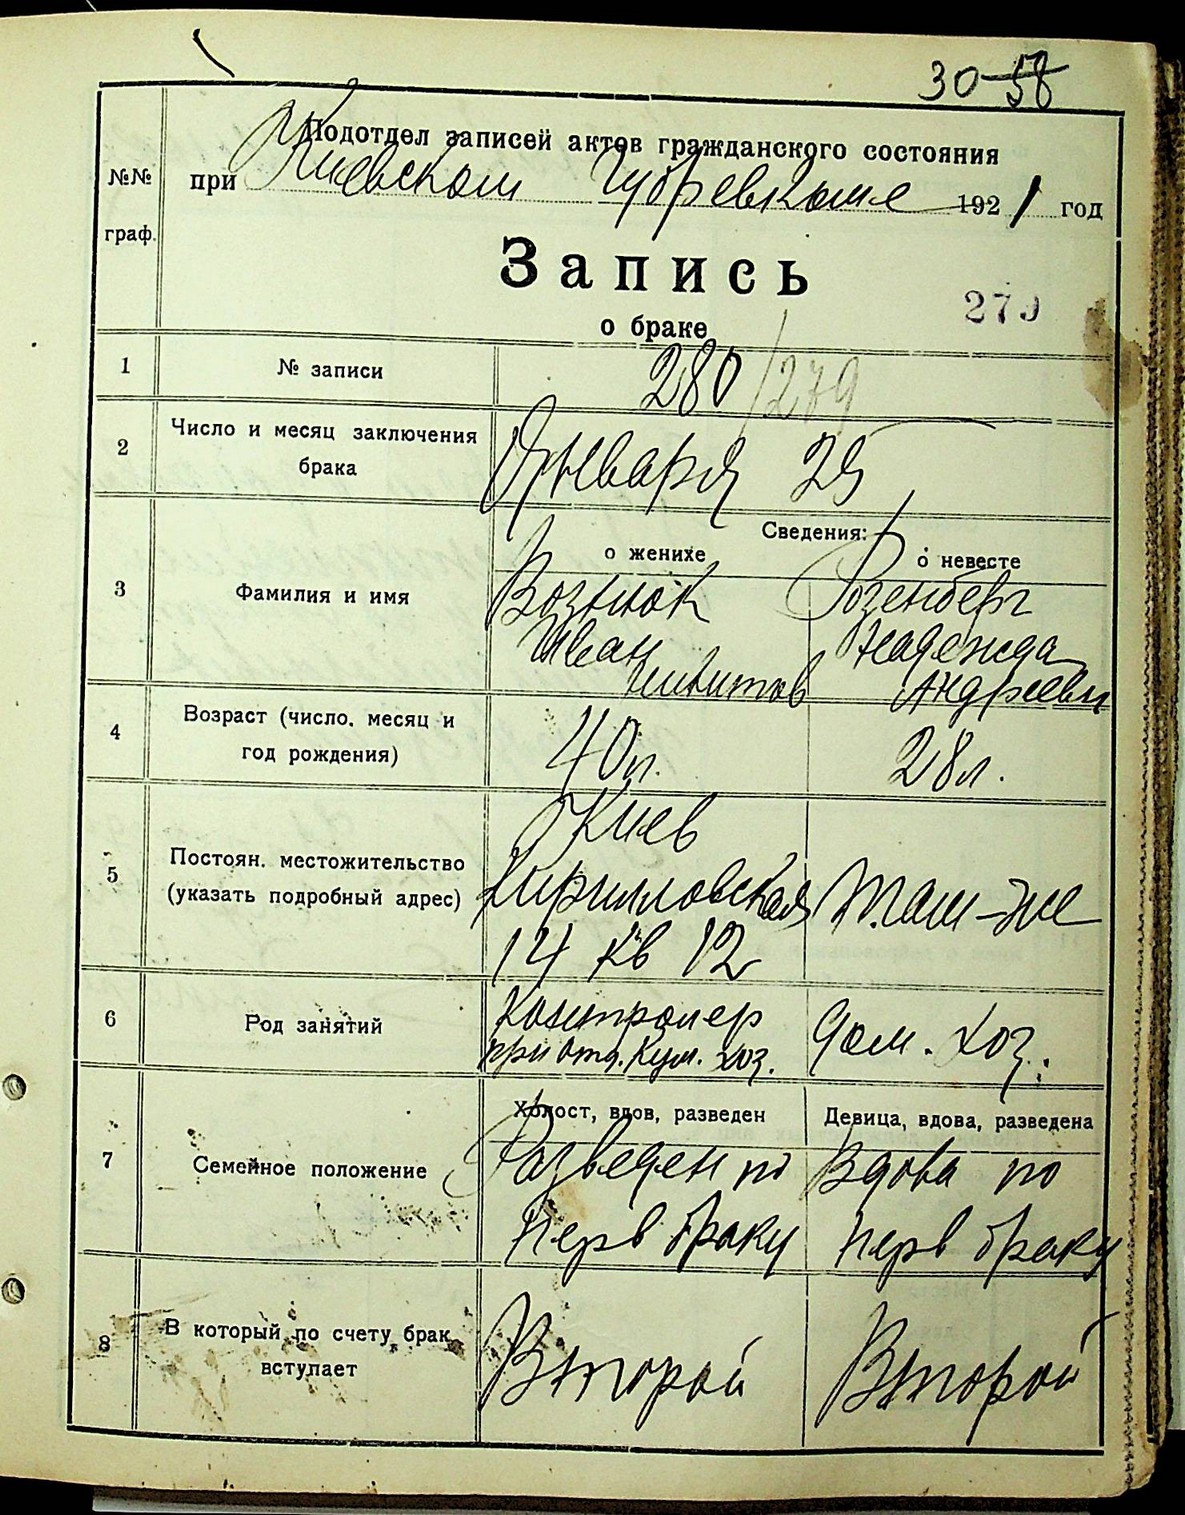 30-58
Подотдел записей актов гражданского состояния
при Киевском Губревкоме 1921 год
№№ граф.
Запись
279
о браке
1 № записи 280/279
2 Число и месяц заключения брака Января 25
Сведения:
о женихе о невесте
3 Фамилия и имя Вознюк Розенберг
Иван Надежда
Никитов Андреевн
4 Возраст (число, месяц и год рождения) 40 л. 28 л.
5 Постоян. местожительство (указать подробный адрес) Киев
Кирилловская Там-же
14 кв 12
6 Род занятий Контролер дом. хоз.
при отд. Ком. хоз.
Холост, вдов, разведен Девица, вдова, разведена
7 Семейное положение Разведен по Вдова по
перв браку перв браку
8 В который по счету брак вступает Второй Второй